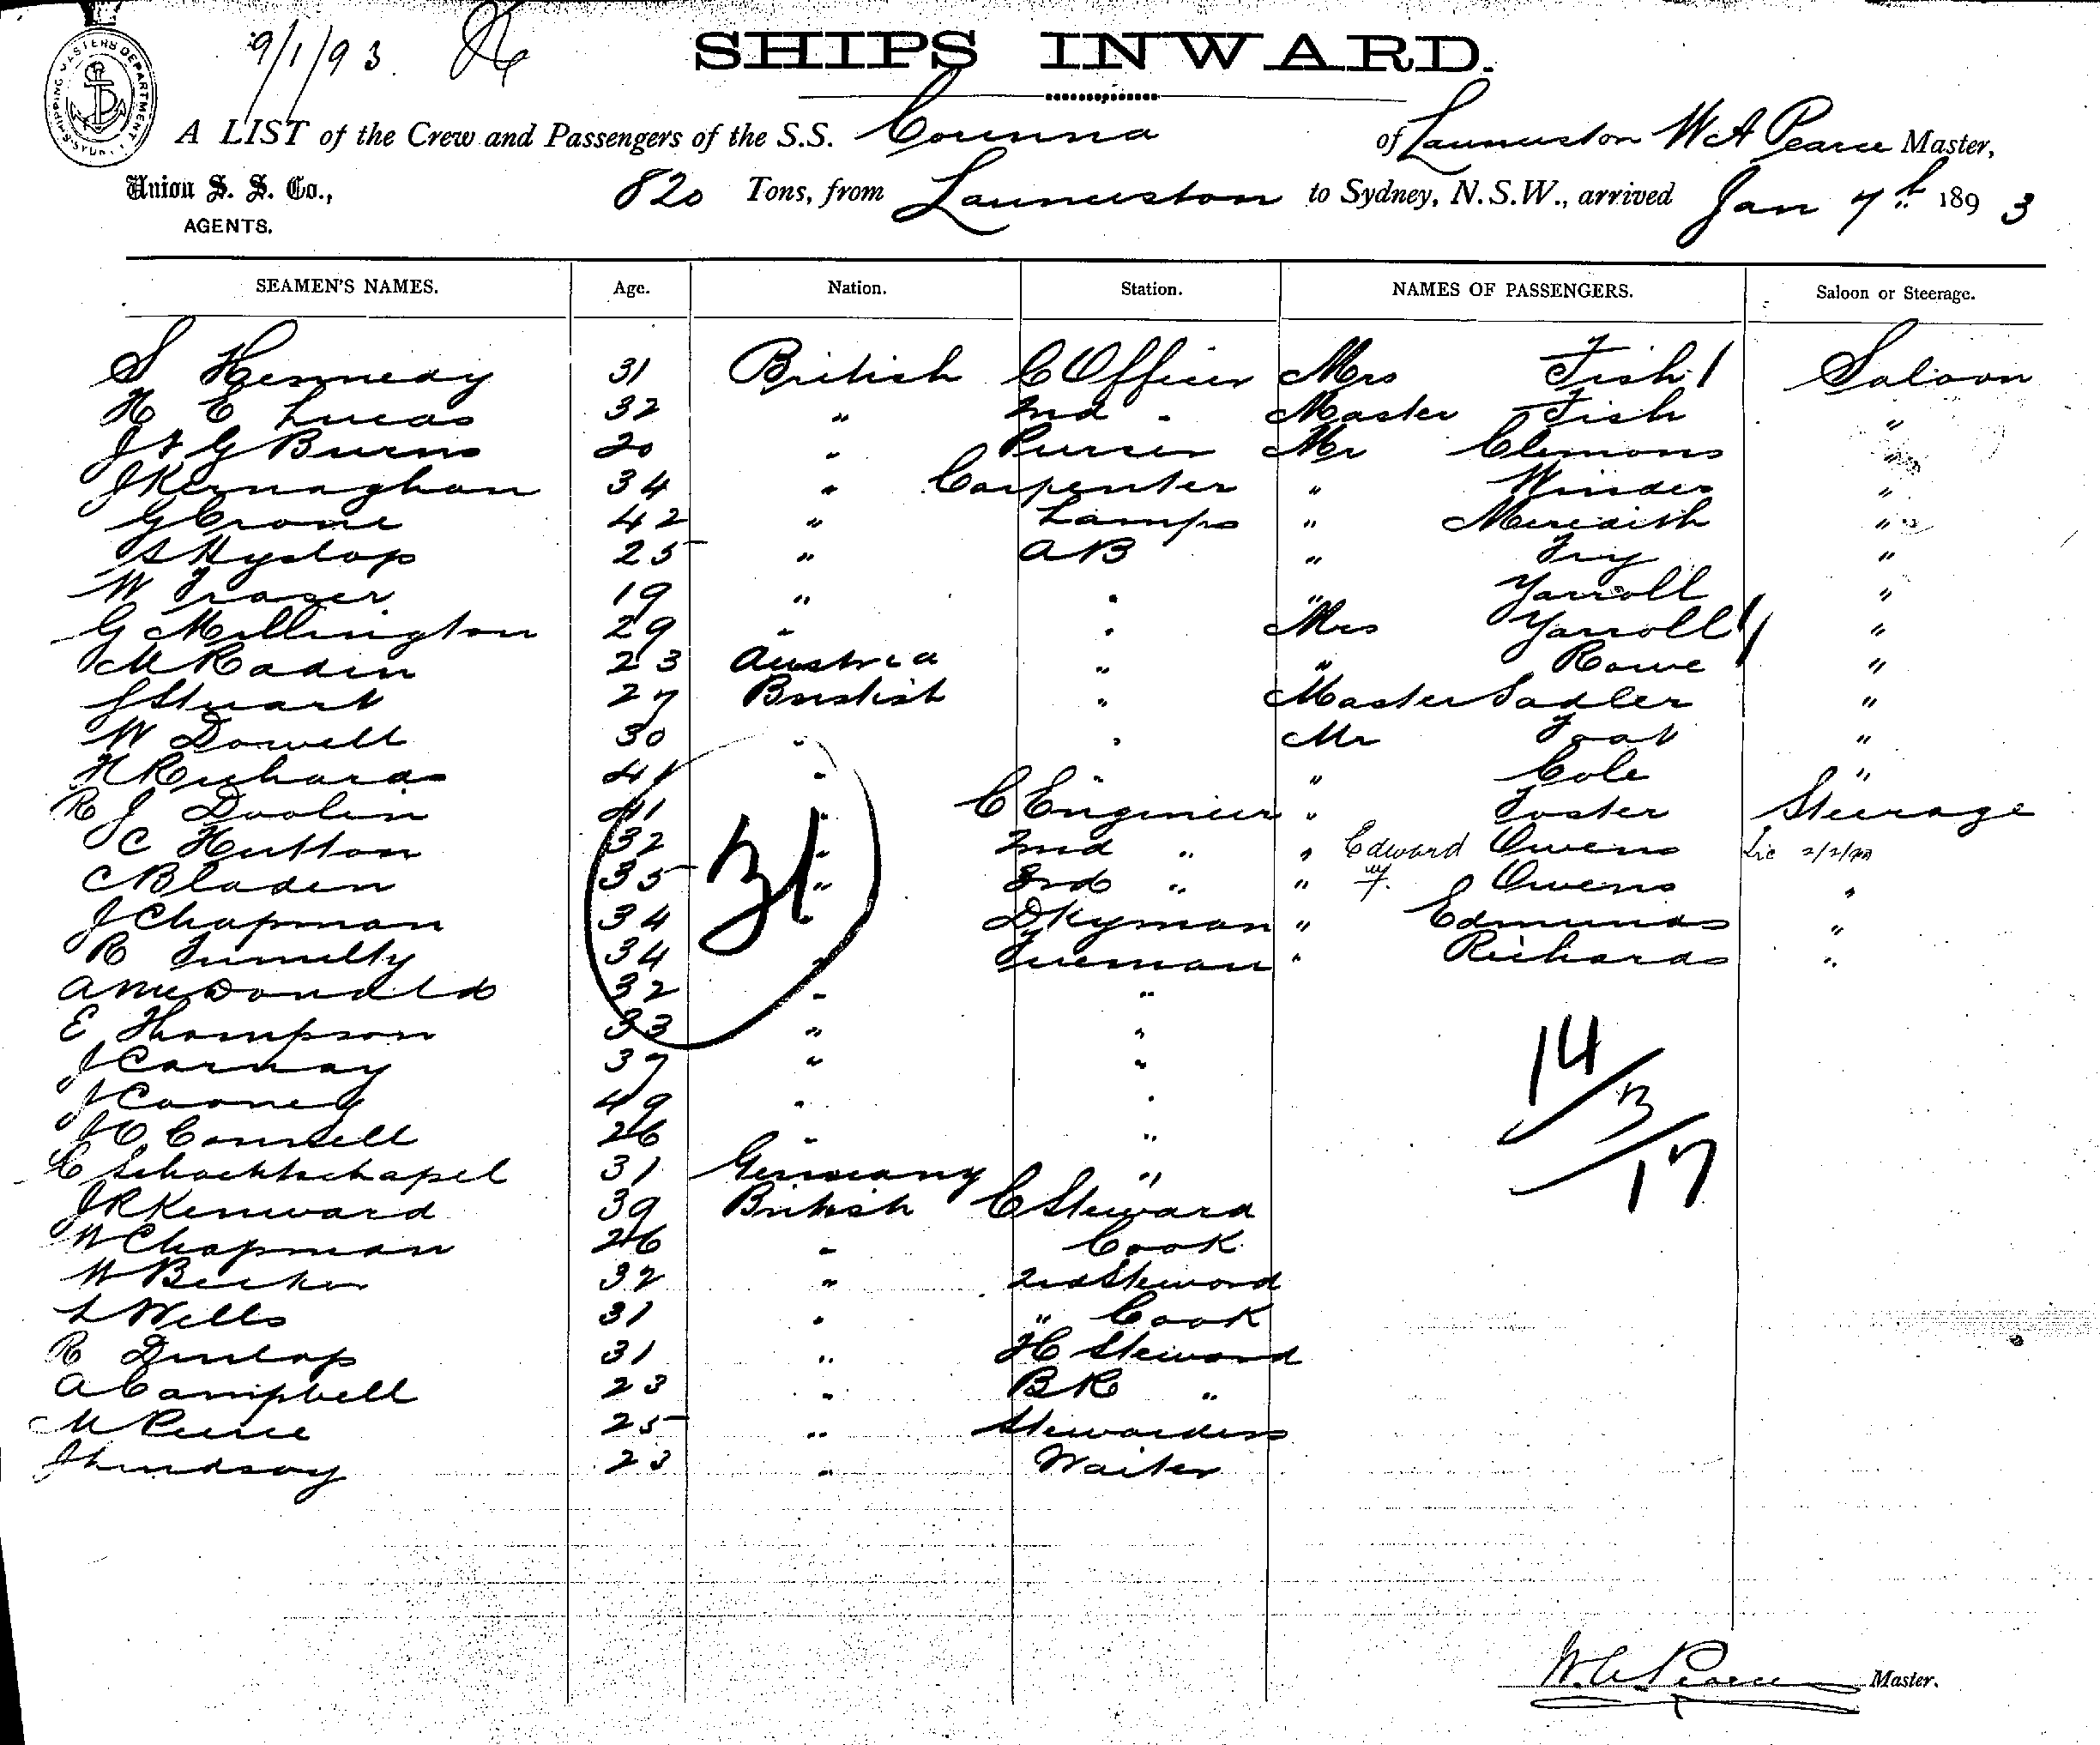 9/1/93
SHIPS INWARD.
SHIPPING MASTERS DEPARTMENT SYDNEY
A LIST of the Crew and Passengers of the S.S. Corinna of Launceston W A Pearce Master,
Union S. S. Co., AGENTS.
820 Tons, from Launceston to Sydney, N.S.W., arrived Jan 7th 1893
SEAMEN'S NAMES. Age. Nation. Station. NAMES OF PASSENGERS. Saloon or Steerage.
S Kennedy 31 British C Officer Mrs Fish 1 Saloon
H E Lucas 32 " 2nd " Master Fish "
J G Burns 20 " Purser Mr Clemons "
J Kernaghan 34 " Carpenter " Winder "
G Crone 42 " Lamps " Meredith "
A Hyslop 25 " AB " Fry "
W Fraser 19 " " " Yarroll "
G Millington 29 " " Mrs Yarroll "
M Radin 23 Austria " " Rowe "
J Stuart 27 British " Master Sadler "
W Dowell 30 " " Mr "
H Richards 41 " " " Cole "
R J Doolin 41 " C Engineer " Foster Steerage
C Hutton 32 " 2nd " " Edward Owens
C Bladen 35 " 3rd " " Owens "
J Chapman 34 " Dkyman " Edmunds "
R Tumelty 34 " Fireman " Richards "
A McDonald 32 " "
E Thompson 33 " "
J Carnay 37 " "
J Cooney 49 " "
J O Connell 26 " "
C 31 Germany "
J R Kenward 39 British C Steward
W Chapman 26 " Cook
W Becker 32 " 2nd Steward
L Wells 31 " " Cook
R Dunlop 31 " FC Steward
A Campbell 23 " BR "
M Peirce 25 " Stewardess
J Lindsay 23 " Waiter
31
14
3
17
W. A. Pearce Master.